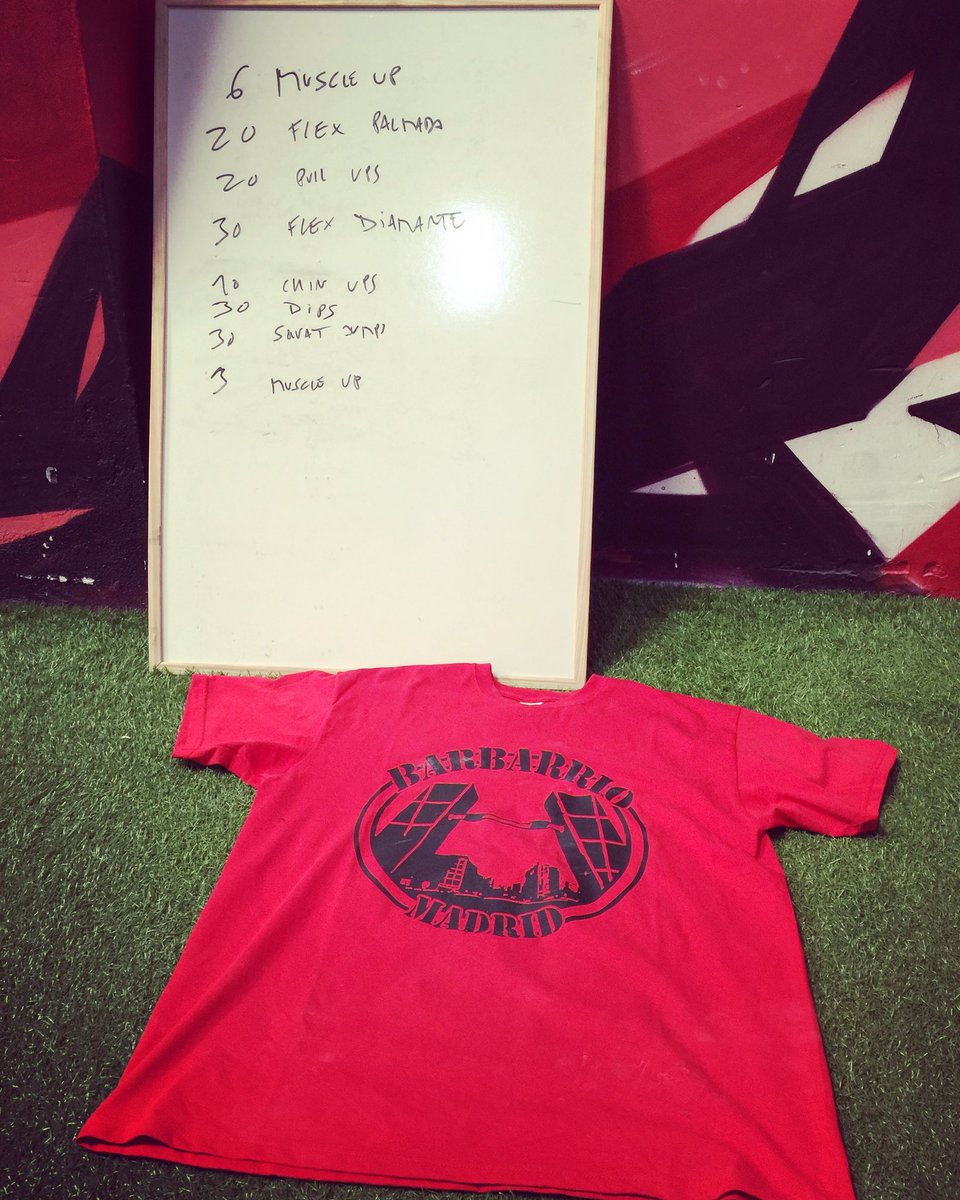 6 MUSCLE UP
20 FLEX PALMADA
20 PULL UPS
30 FLEX DIAMANTE
10 CHIN UPS
30 DIPS
30 SQUAT JUMPS
3 MUSCLE UP
BARBARRIO
MADRID